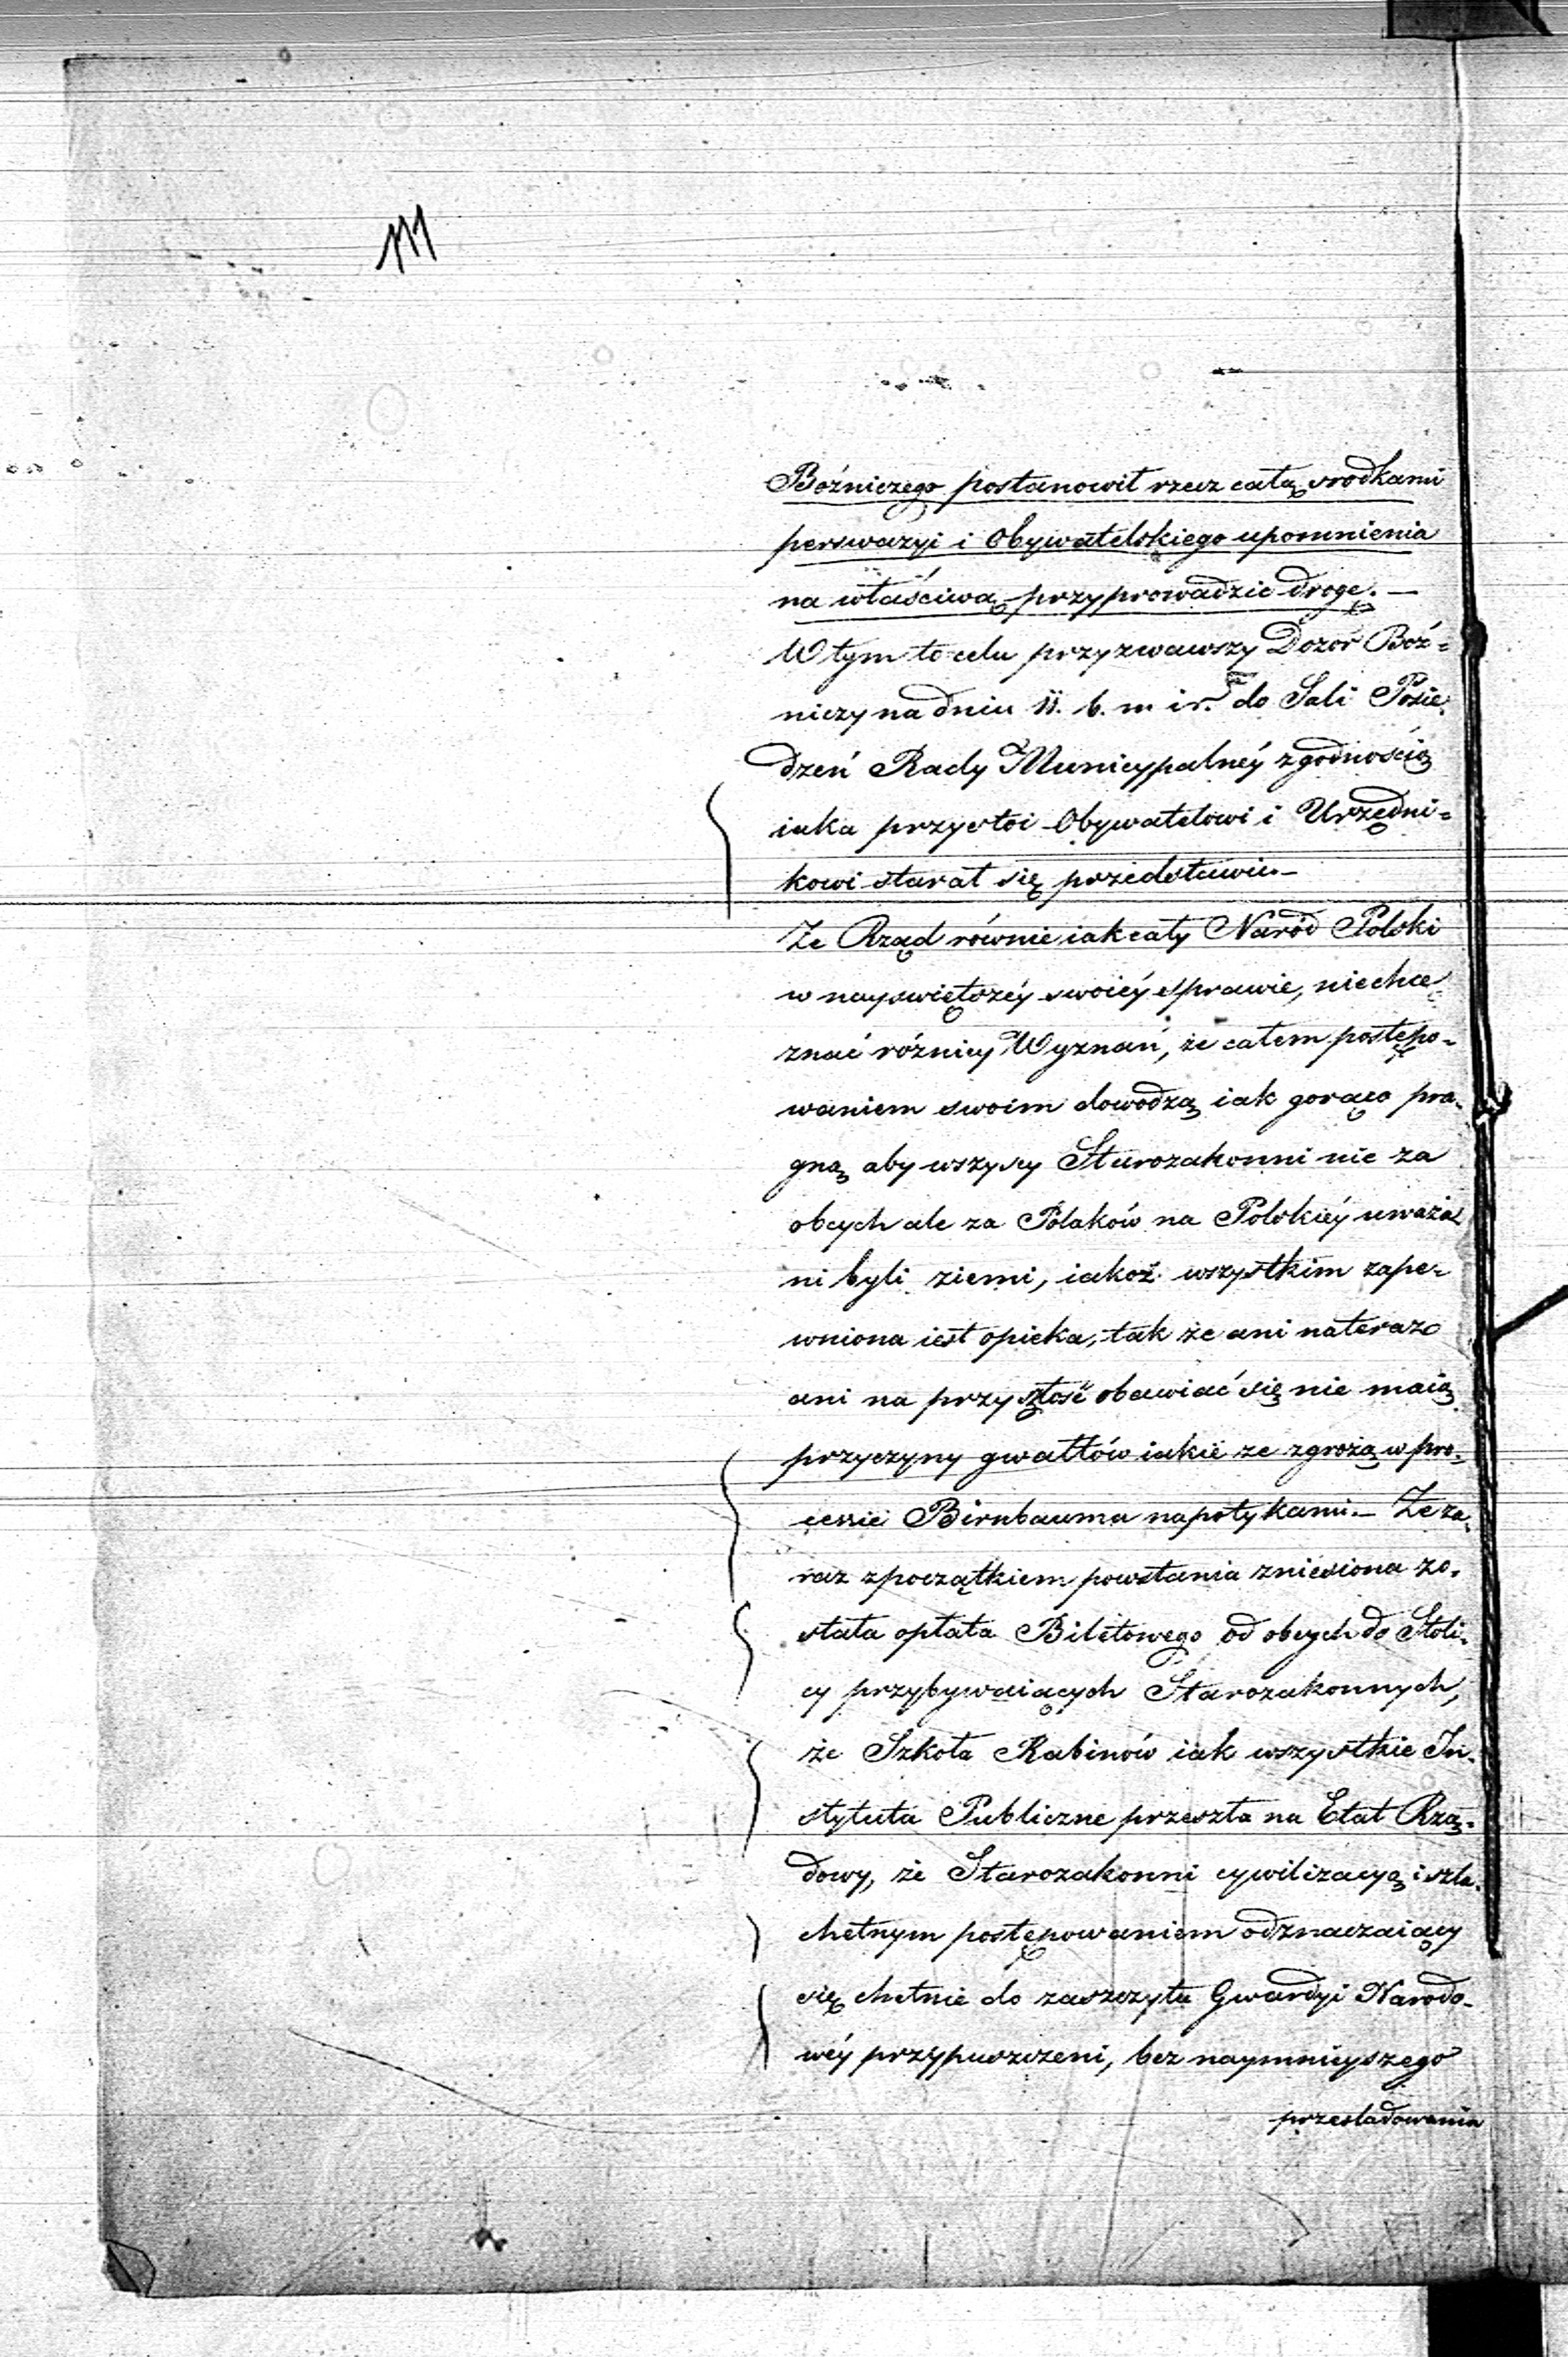 111
Bóżniczego postanowił rzecz całą srodkami
perswazyi i Obywatelskiego upomnienia
na właściwą przyprowadzic drogę. —
W tym to celu przyzwawszy Dozór Boż=
niczy na dniu 11. b. m. i r. do Sali Posie=
dzeń Rady Municypalnéy z godnością
iaka przystoi Obywatelowi i Urzędni=
kowi starał się przedstawić. —
Że Rząd równie iak cały Naród Polski
w nayswiętszéy swoiéy sprawie, niechce
znać różnicy Wyznań, że całem postępo-
waniem swoim dowodzą iak gorąco pra-
gną aby wszyscy Starozakonni nie za
obcych ale za Polaków na Polskiéy uważa
ni byli ziemi, iakoż wszystkim zape-
wniona iest opieka, tak że ani nateraz
ani na przyszłość obawiać się nie maią
przyczyny gwałtów iakie ze zgrozą w pro-
cessie Birnbauma napotykami. — Że za-
raz z początkiem powstania zniesiona zo-
stała opłata Biletowego od obcych do Stoli-
cy przybywaiących Starozakonnych,
że Szkoła Rabinów iak wszystkie In-
stytuta Publiczne przeszła na Etat Rzą-
dowy, że Starozakonni cywilizacyą i szla-
chetnym postępowaniem odznaczaiący
się chetnie do zaszczytu Gwardyi Narodo-
wéy przypuszczeni, bez naymnieyszego
przesladowania